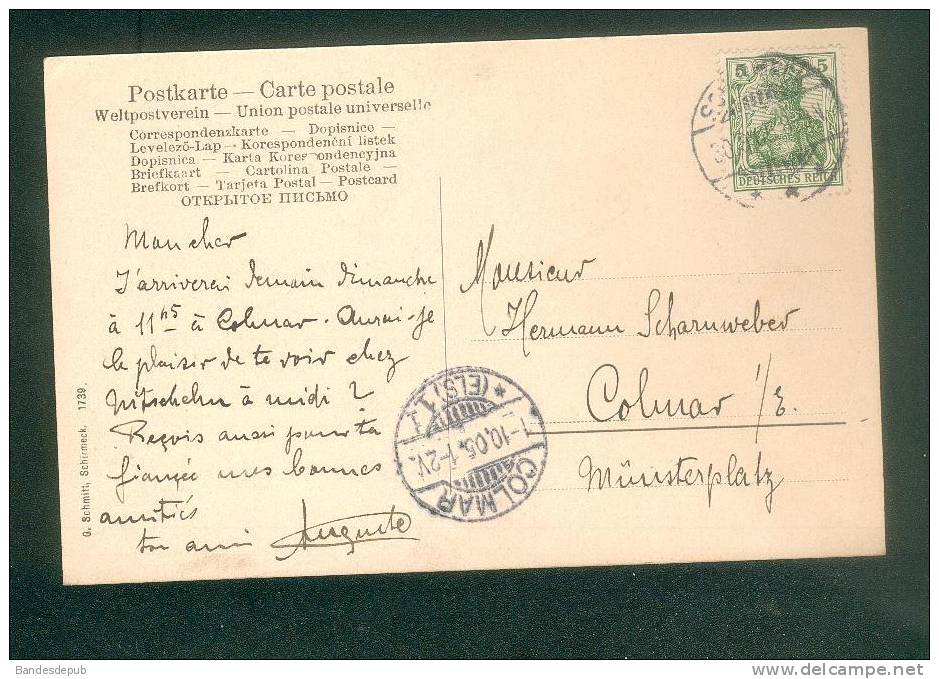 Postkarte — Carte postale
Weltpostverein — Union postale universelle
Correspondenzkarte — Dopisnice —
Levelező-Lap — Korespondenční listek
Dopisnica — Karta Korespondencyjna
Briefkaart — Cartolina Postale —
Brefkort — Tarjeta Postal — Postcard
ОТКРЫТОЕ ПИСЬМО
5 5
DEUTSCHES REICH
Mon cher
J'arriverai demain dimanche
à 11h5 à Colmar. Aurai-je
le plaisir de te voir chez
à midi ?
Reçois ainsi pour ta
fiancée mes bonnes
amitiés
ton ami Auguste
Monsieur
Hermann Scharnweber
Colmar i/E.
Münsterplatz
COLMAR
(ELS.) 1
1-10.05.1-2V.
G. Schmitt, Schirmeck. 1739.
Bandesdepub
www.delcampe.net